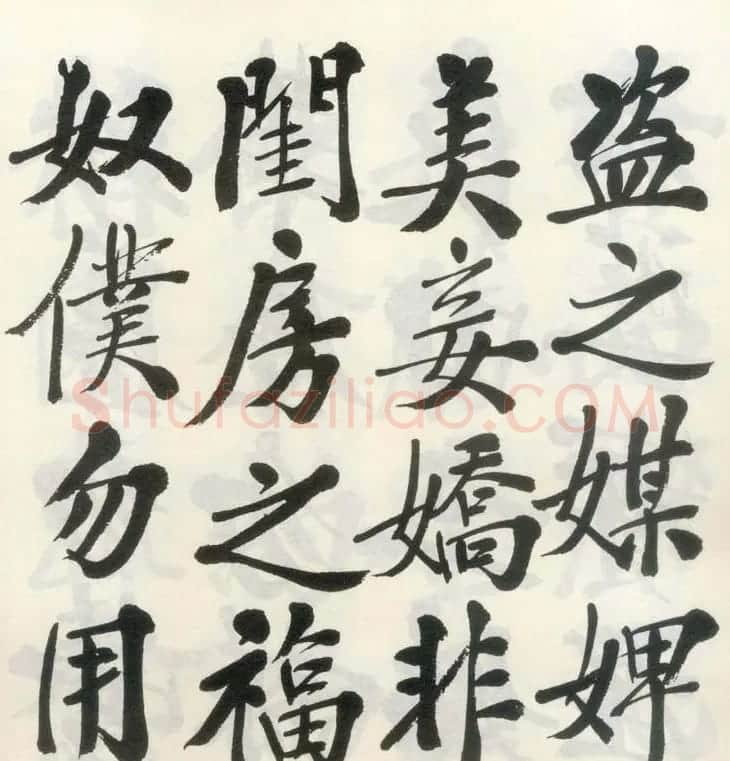 盗之媒婢
美妾嬌非
閨房之福
奴僕勿用
Shufaziliao.COM